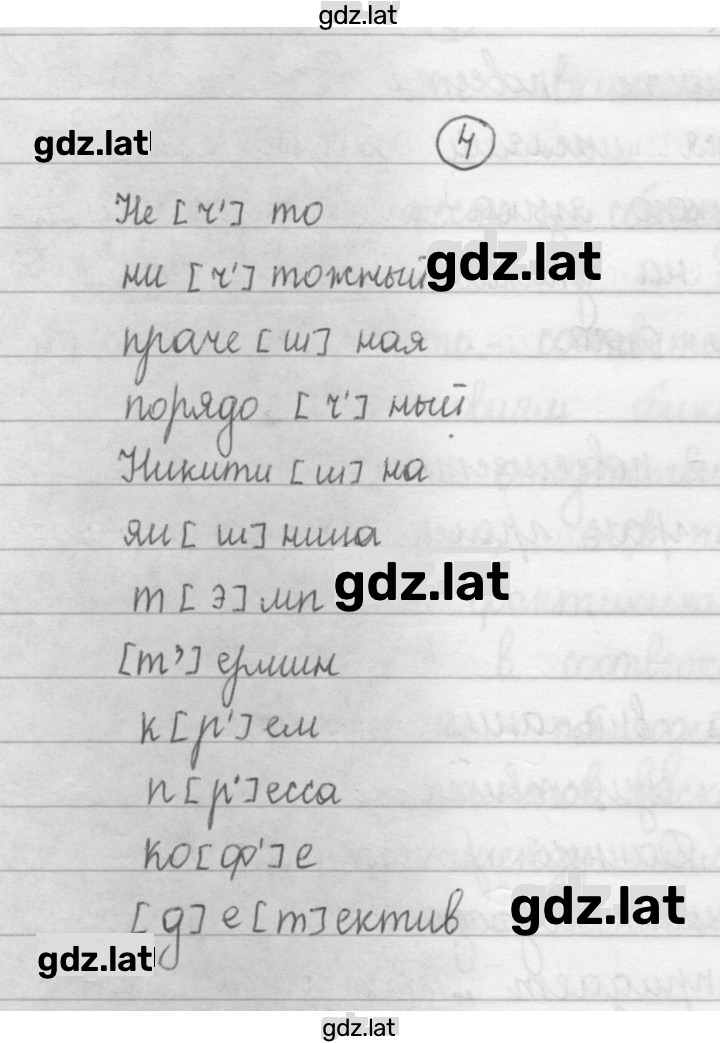 gdz.lat
gdz.lat
4
Не [ч'] то
ни [ч'] тожный
gdz.lat
праче [ш] ная
порядо [ч'] ный
Никити [ш] на
яи [ш] ница
т [э] мп
gdz.lat
[т'] ермин
к [р'] ем
п [р'] есса
ко [ф'] е
[д] е [т] ектив
gdz.lat
gdz.lat
gdz.lat